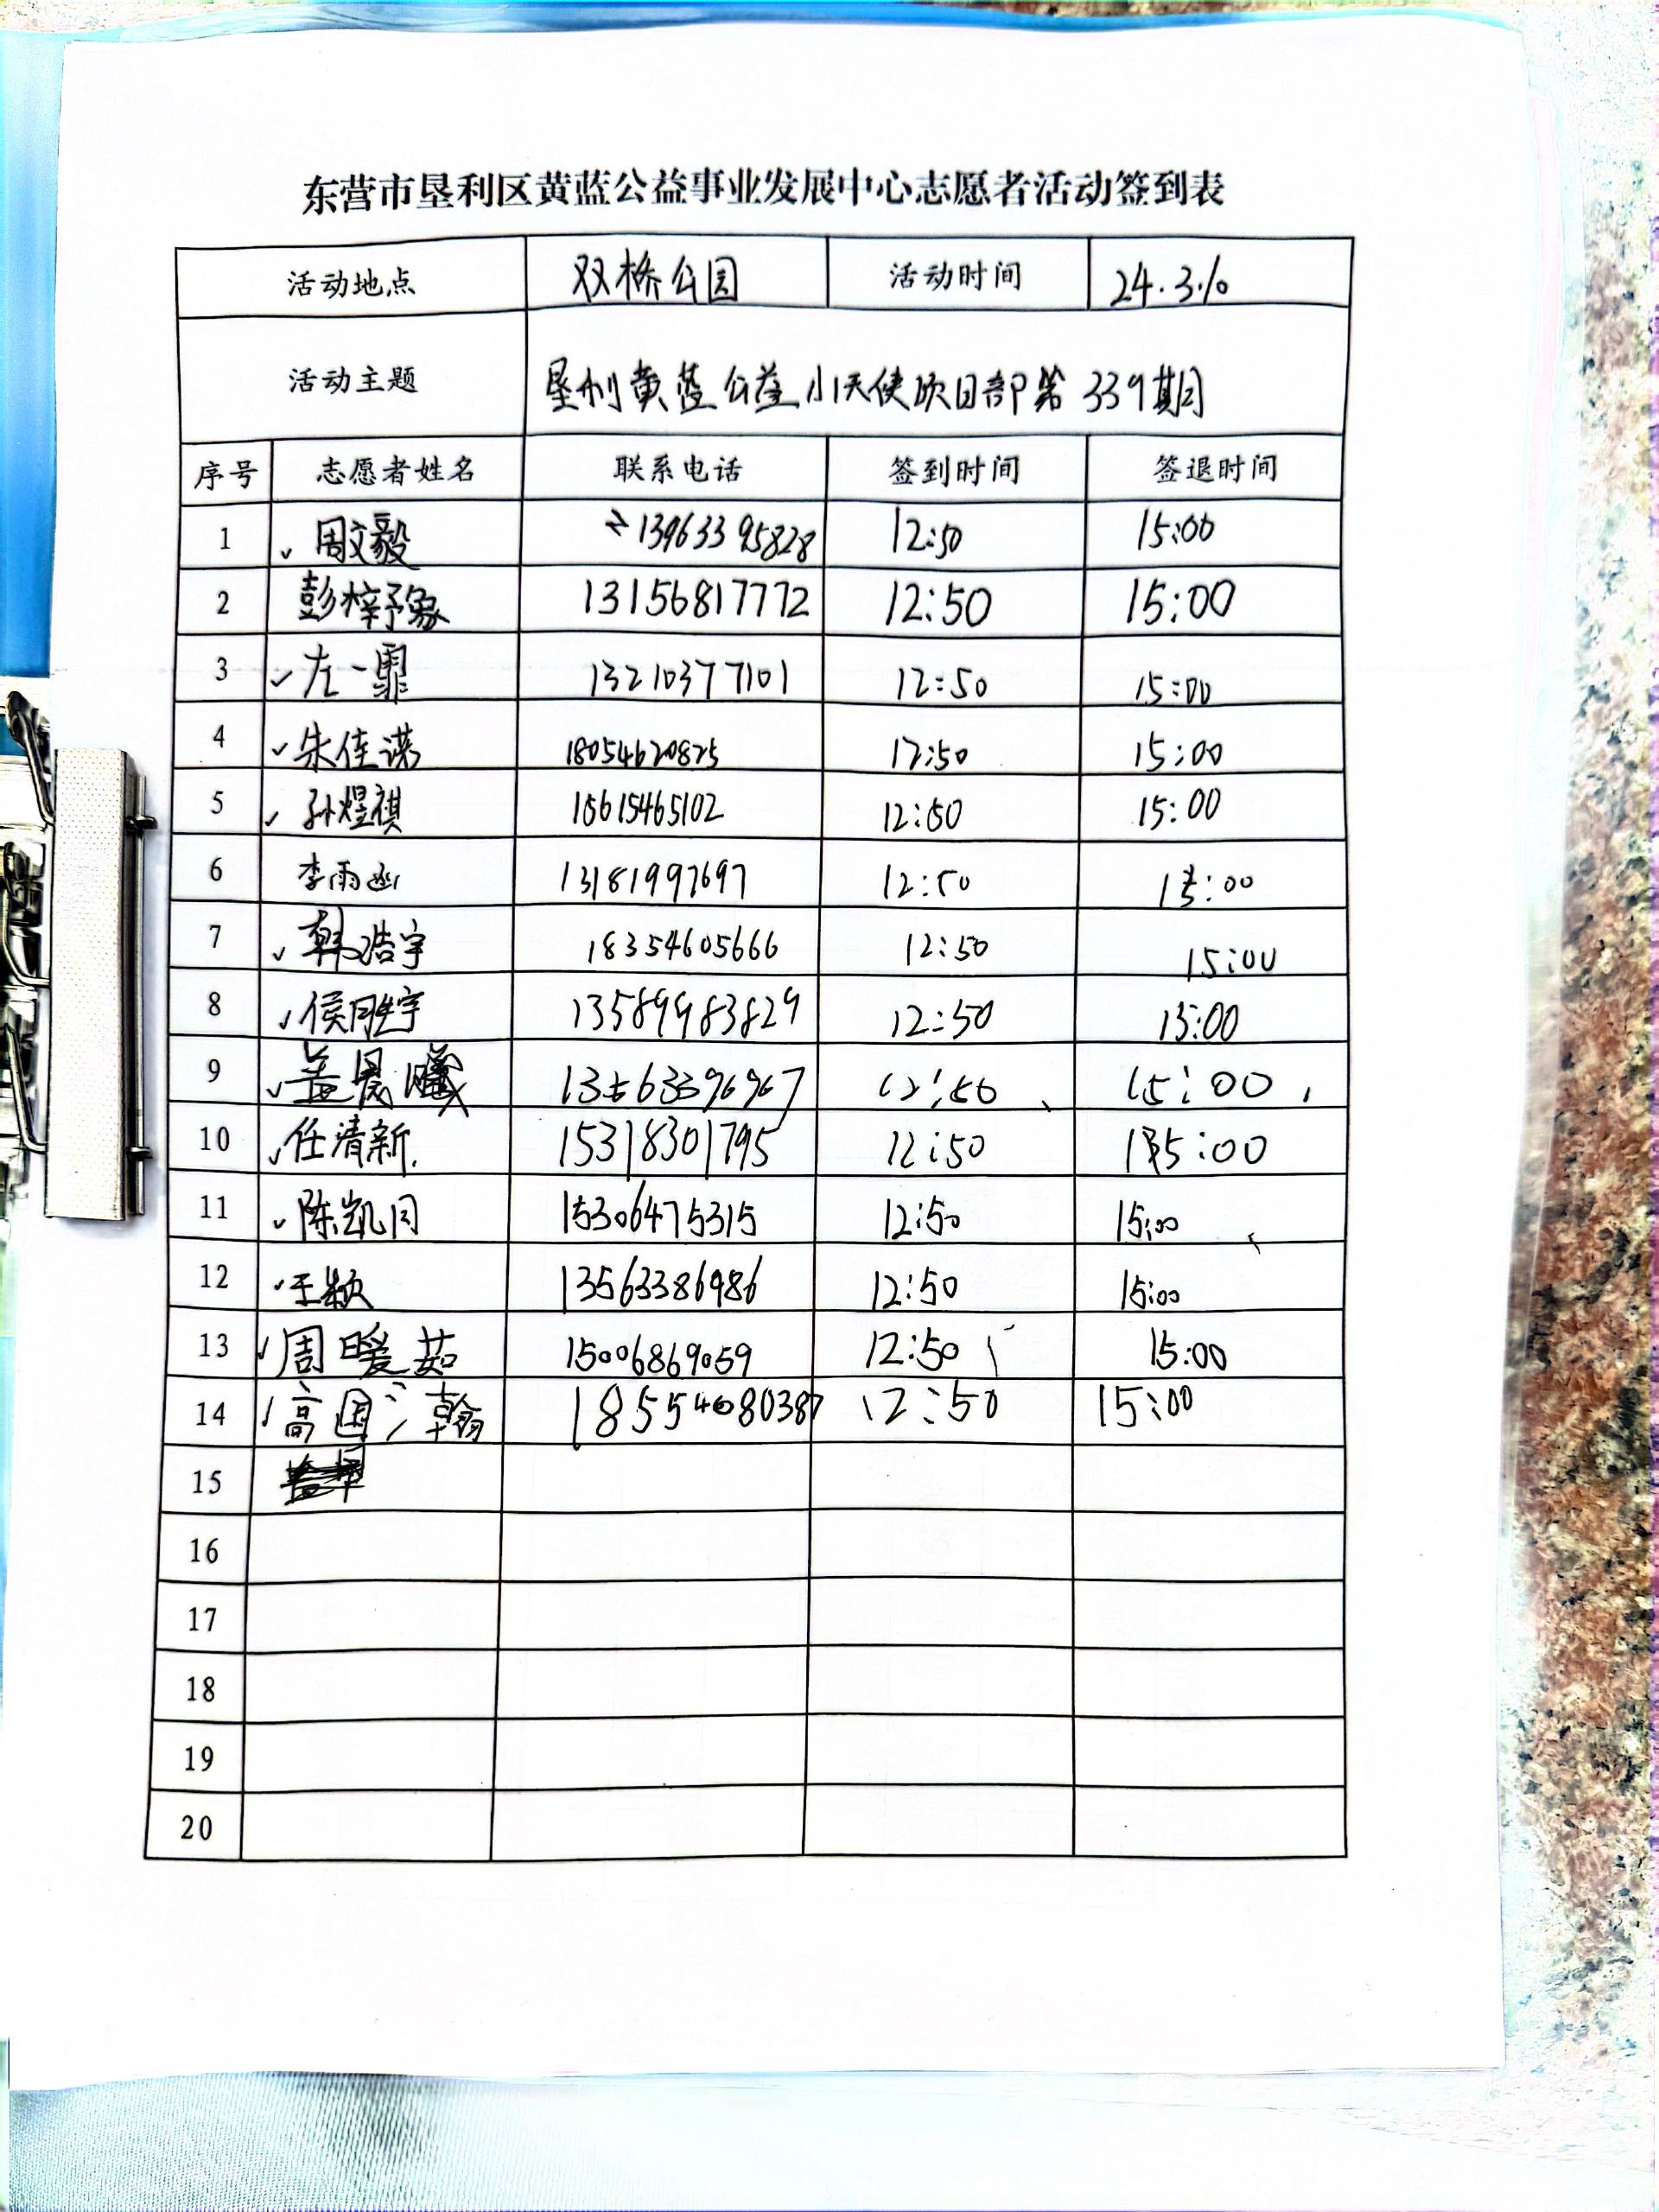 东营市垦利区黄蓝公益事业发展中心志愿者活动签到表
活动地点 双桥公园 活动时间 24.3.10
活动主题 垦利黄蓝公益小天使项目部第339期
序号 志愿者姓名 联系电话 签到时间 签退时间
1 周文毅 13963395828 12:50 15:00
2 彭梓予象 13156817772 12:50 15:00
3 左一霏 13210377101 12:50 15:00
4 朱佳诺 18054620825 12:50 15:00
5 孙煜祺 15615465102 12:50 15:00
6 李雨函 13181997697 12:50 15:00
7 韩浩宇 18354605666 12:50 15:00
8 侯胜宇 13589983829 12:50 15:00
9 盖晨曦 13563396967 12:50 15:00
10 任清新 15318301795 12:50 15:00
11 陈凯同 15306475315 12:50 15:00
12 王颖 13563386986 12:50 15:00
13 周暖茹 15006869059 12:50 15:00
14 高国瀚 18554680387 12:50 15:00
15
16
17
18
19
20